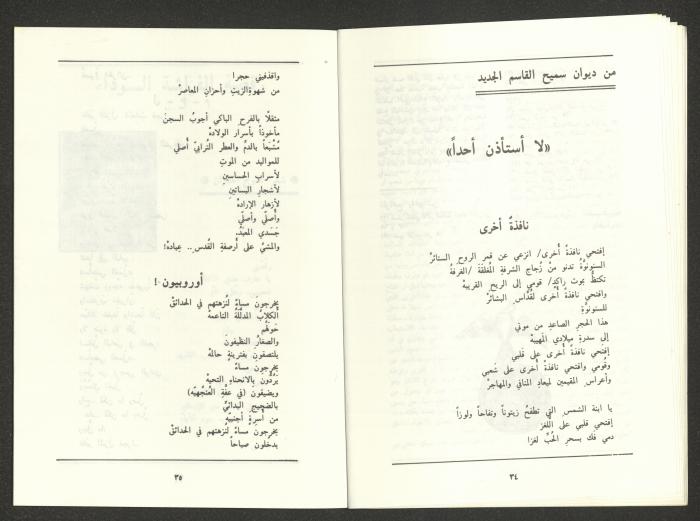 من ديوان سميح القاسم الجديد
«لا أستأذن أحداً»
نافذةٌ أخرى
إفتحي نافذةً أُخرى/ انزعي عن قمر الروح الستائرْ
السنونوَّةُ تدنو منْ زُجاج الشرفةِ المُغلقَة /الغرفةُ
تكتظُّ بموت راكدٍ/ قومي إلى الريح القريبهْ
وافتحي نافذةً أخرى لقُدَّاس البشائرْ
للسنونوَّةِ
هذا الحجر الصاعد من موتي
إلى سدرةِ ميلادي المَهيبهْ
إفتحي نافذةً أُخرى على قلبي
وقُومي وافتحي نافذةً أُخرى على شعبي
وأعراس المقيمين لميعاد المنافي والمهاجرْ
يا ابنة الشمس التي تطفحُ زيتوناً وتفاحاً ولوزاً
إفتحي قلبي على اللُّغز
دمي فك بسحر الحُبِّ لغزا
٣٤
واقذفيني حجرا
من شهوةِ الزيتِ وأحزانِ المعاصرْ
مثقلًا بالفرح الباكي أجوبُ السجنَ
مأخوذاً بأسرار الولادهْ
مُشْبَعاً بالدمِّ والعطر التُرابيِّ أُصلي
للمواليد من الموتِ
لأسرابِ الحساسين
لأشجار البساتين
لأزهار الإرادهْ
وأصلّي وأصلّي
جَسَدي المعبَدُ.
والمشيُ على أرصفةِ القُدس .. عِبادهْ!
أوروبيون!
يخرجونَ مساءً لنُزهتهم في الحدائقْ
الكلابُ المدلَّلةُ الناعمهْ
حولَهُم
والصغارُ النظيفونَ
يلتصقون بفترينةٍ حالمهْ
يخرجون مساءً
يَرُدُّونَ بالانحناءِ التحيهْ
ويضيقون (في عفَّةِ العُنجُهيّه)
بالضجيج البدائيِّ
من أُسرةٍ أجنبيّهْ
يخرجونَ مساءً لنُزهتهم في الحدائقْ
يدخلون صباحاً
٣٥